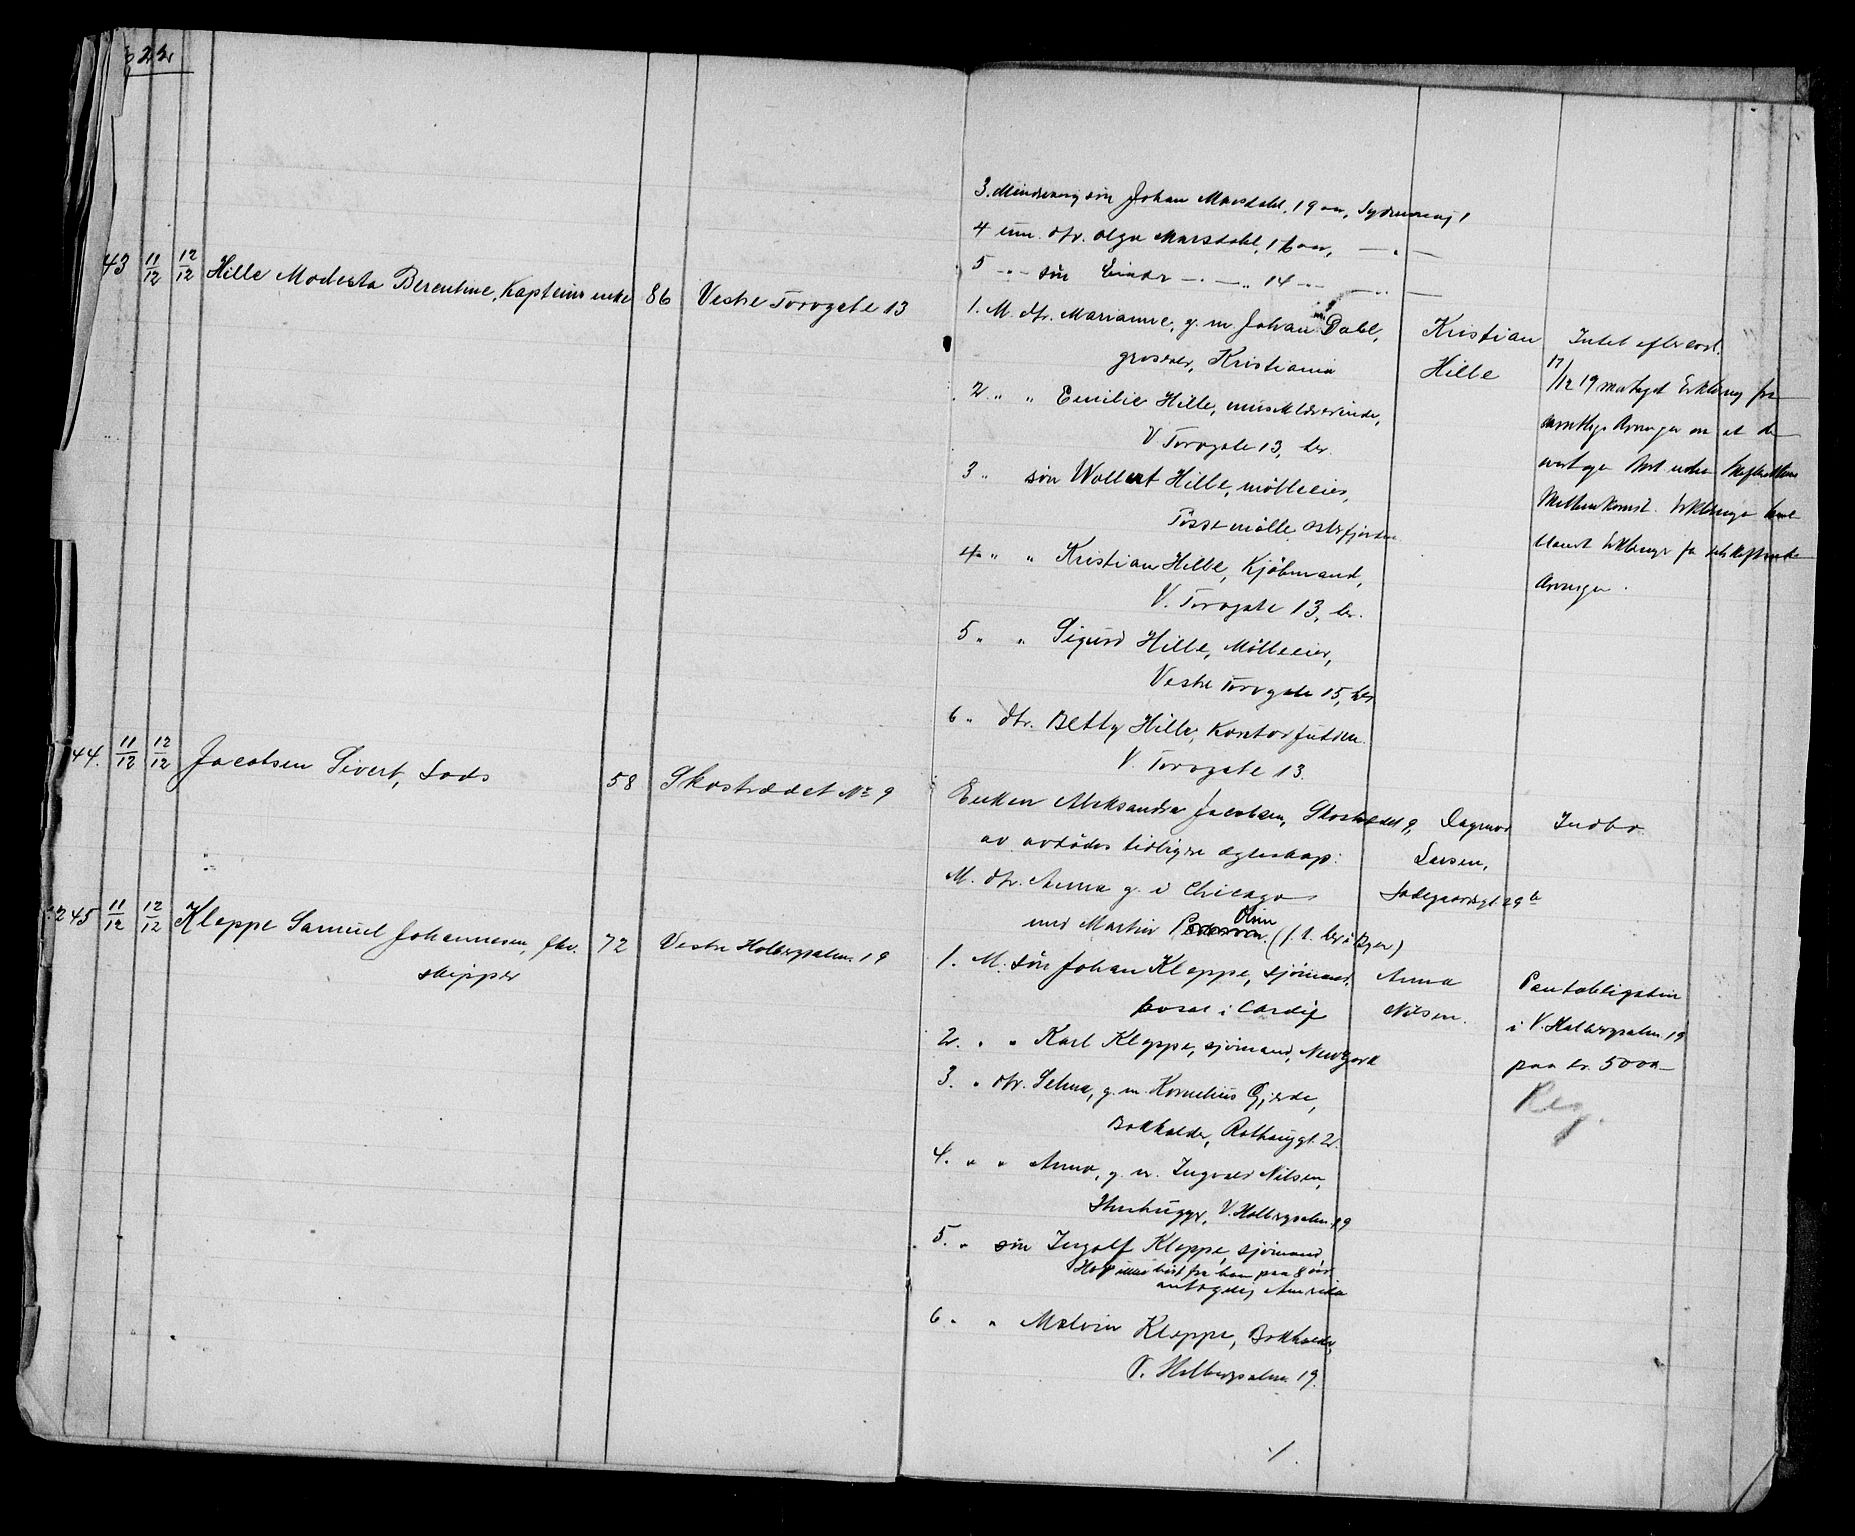 322
3. Mindreaarig søn Johan Marsdahl, 19 aar, Sydnesvej 1
4 um. dtr. Olga Marsdahl, 16 aar, — " —
5 - " - søn Einar - " - 14 - " - — " —
43 11/12 12/12 Hille Modesta Berentine, Kapteins enke 86 Vestre Torvgate 13
1. M. dtr. Marianne, g. m. Johan Dahl,
grosserer, Kristiania
2. " " Emilie Hille, musiklærerinde,
V Torvgate 13, her.
3 " søn Wollert Hille, mölleeier,
Tosse mölle Osterfjorden
4 " " Kristian Hille, Kjöbmand,
V. Torvgate 13, her.
5 " " Sigurd Hille, Mölleeier,
Vestre Torvgate 15, her
6 " dtr. Betty Hille, Kontor
V. Torvgate 13.
Kristian
Hille
Intet efterladt.
17/12 19 mottaget Erklæring fra
samtlige Arvinger om at de
Mellemkomst. Erklæringen
blandt Erklæringer fra
Arvinger.
44. 11/12 12/12 Jacobsen Sivert, Lods 58 Skostrædet No 9
Enken Aleksandra Jacobsen, Skostrædet 9,
av avdödes tidligere egteskap:
M. dtr. Anna g. i Chicago
med Martin Olsen (f. t. her i Byen)
Dagmar
Larsen,
Ladegaardsgt 29 b
Indbo
245 11/12 12/12 Kleppe Samuel Johannesen, fhv. 72 Vestre Holbergsalm. 19
skipper
1. M. søn Johan Kleppe, sjömand,
bosat i Cardif
2. " " Karl Kleppe, sjömand, New York
3. " dtr. Selma, g. m. Kornelius Gjerde,
Bokholder, Rothaugt. 2.
4. " " Anna, g. m. Ingvald Nilsen,
Stenhugger, V. Holbergsalm. 19
5. " søn Ingolf Kleppe, sjömand
Har intet hørt fra ham paa 8 aar
antagelig Amerika
6. " " Malvin Kleppe, Bokholder,
V. Holbergsalm. 19.
Anna
Nilsen.
Pantobligation
i V. Holbergsalm. 19
paa kr. 5000 —
Reg.
./.